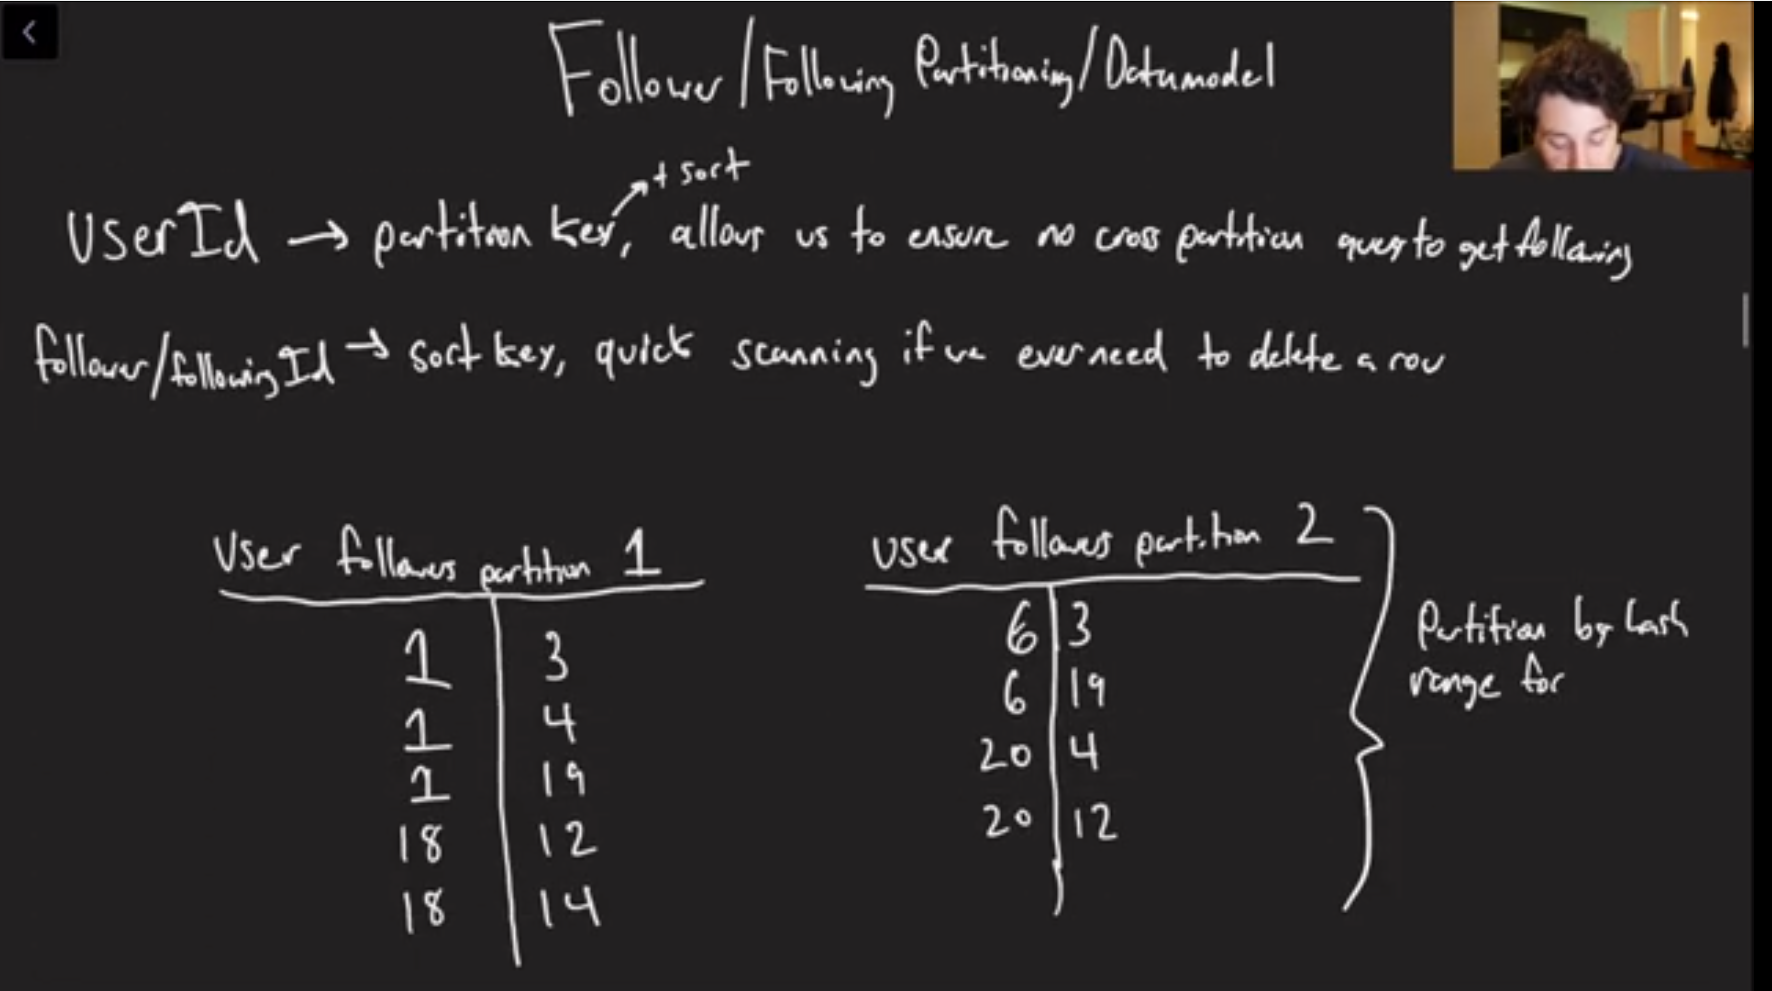 Follower/Following Partitioning/Datamodel
+ sort
UserId → partition key, allows us to ensure no cross partition query to get following
follower/followingId → sort key, quick scanning if we ever need to delete a row
User followers partition 1
1 3
1 4
1 19
18 12
18 14
User followers partition 2
6 3
6 19
20 4
20 12
Partition by hash
range for